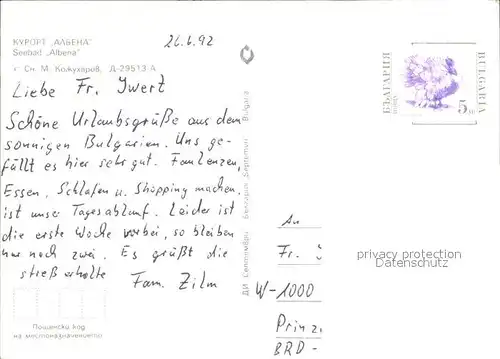 КУРОРТ „АЛБЕНА"
Seebad „Albena"
Сн. М. Кожухаров. Д-29513-А
26.6.92
Liebe Fr. Ywert
Schöne Urlaubsgrüße aus dem
sonnigen Bulgarien. Uns ge-
fällt es hier sehr gut. Faulenzen,
Essen, Schlafen u. Shopping machen,
ist unser Tagesablauf. Leider ist
die erste Woche vorbei, so bleiben
nur noch zwei. Es grüßt die
streß erholte
Fam. Zilm
Пощенски код
на местоназначението
ДИ Септември България Septemvri Bulgaria
БЪЛГАРИЯ
поща
5
BULGARIA
An
Fr.
W-1000
Prinz
BRD-
privacy protection
Datenschutz